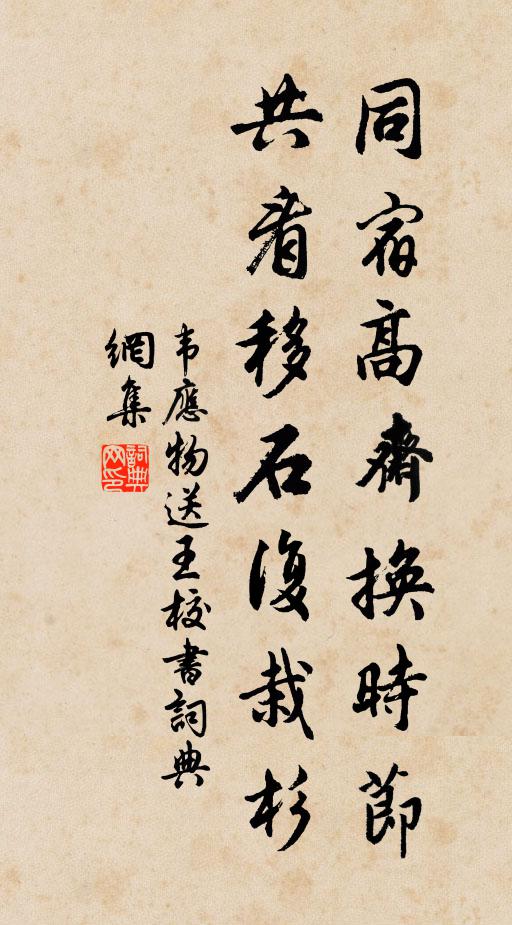 同宿高齋換時節
共看移石復栽杉
韦應物送王校書詞典
網集
詞典網印